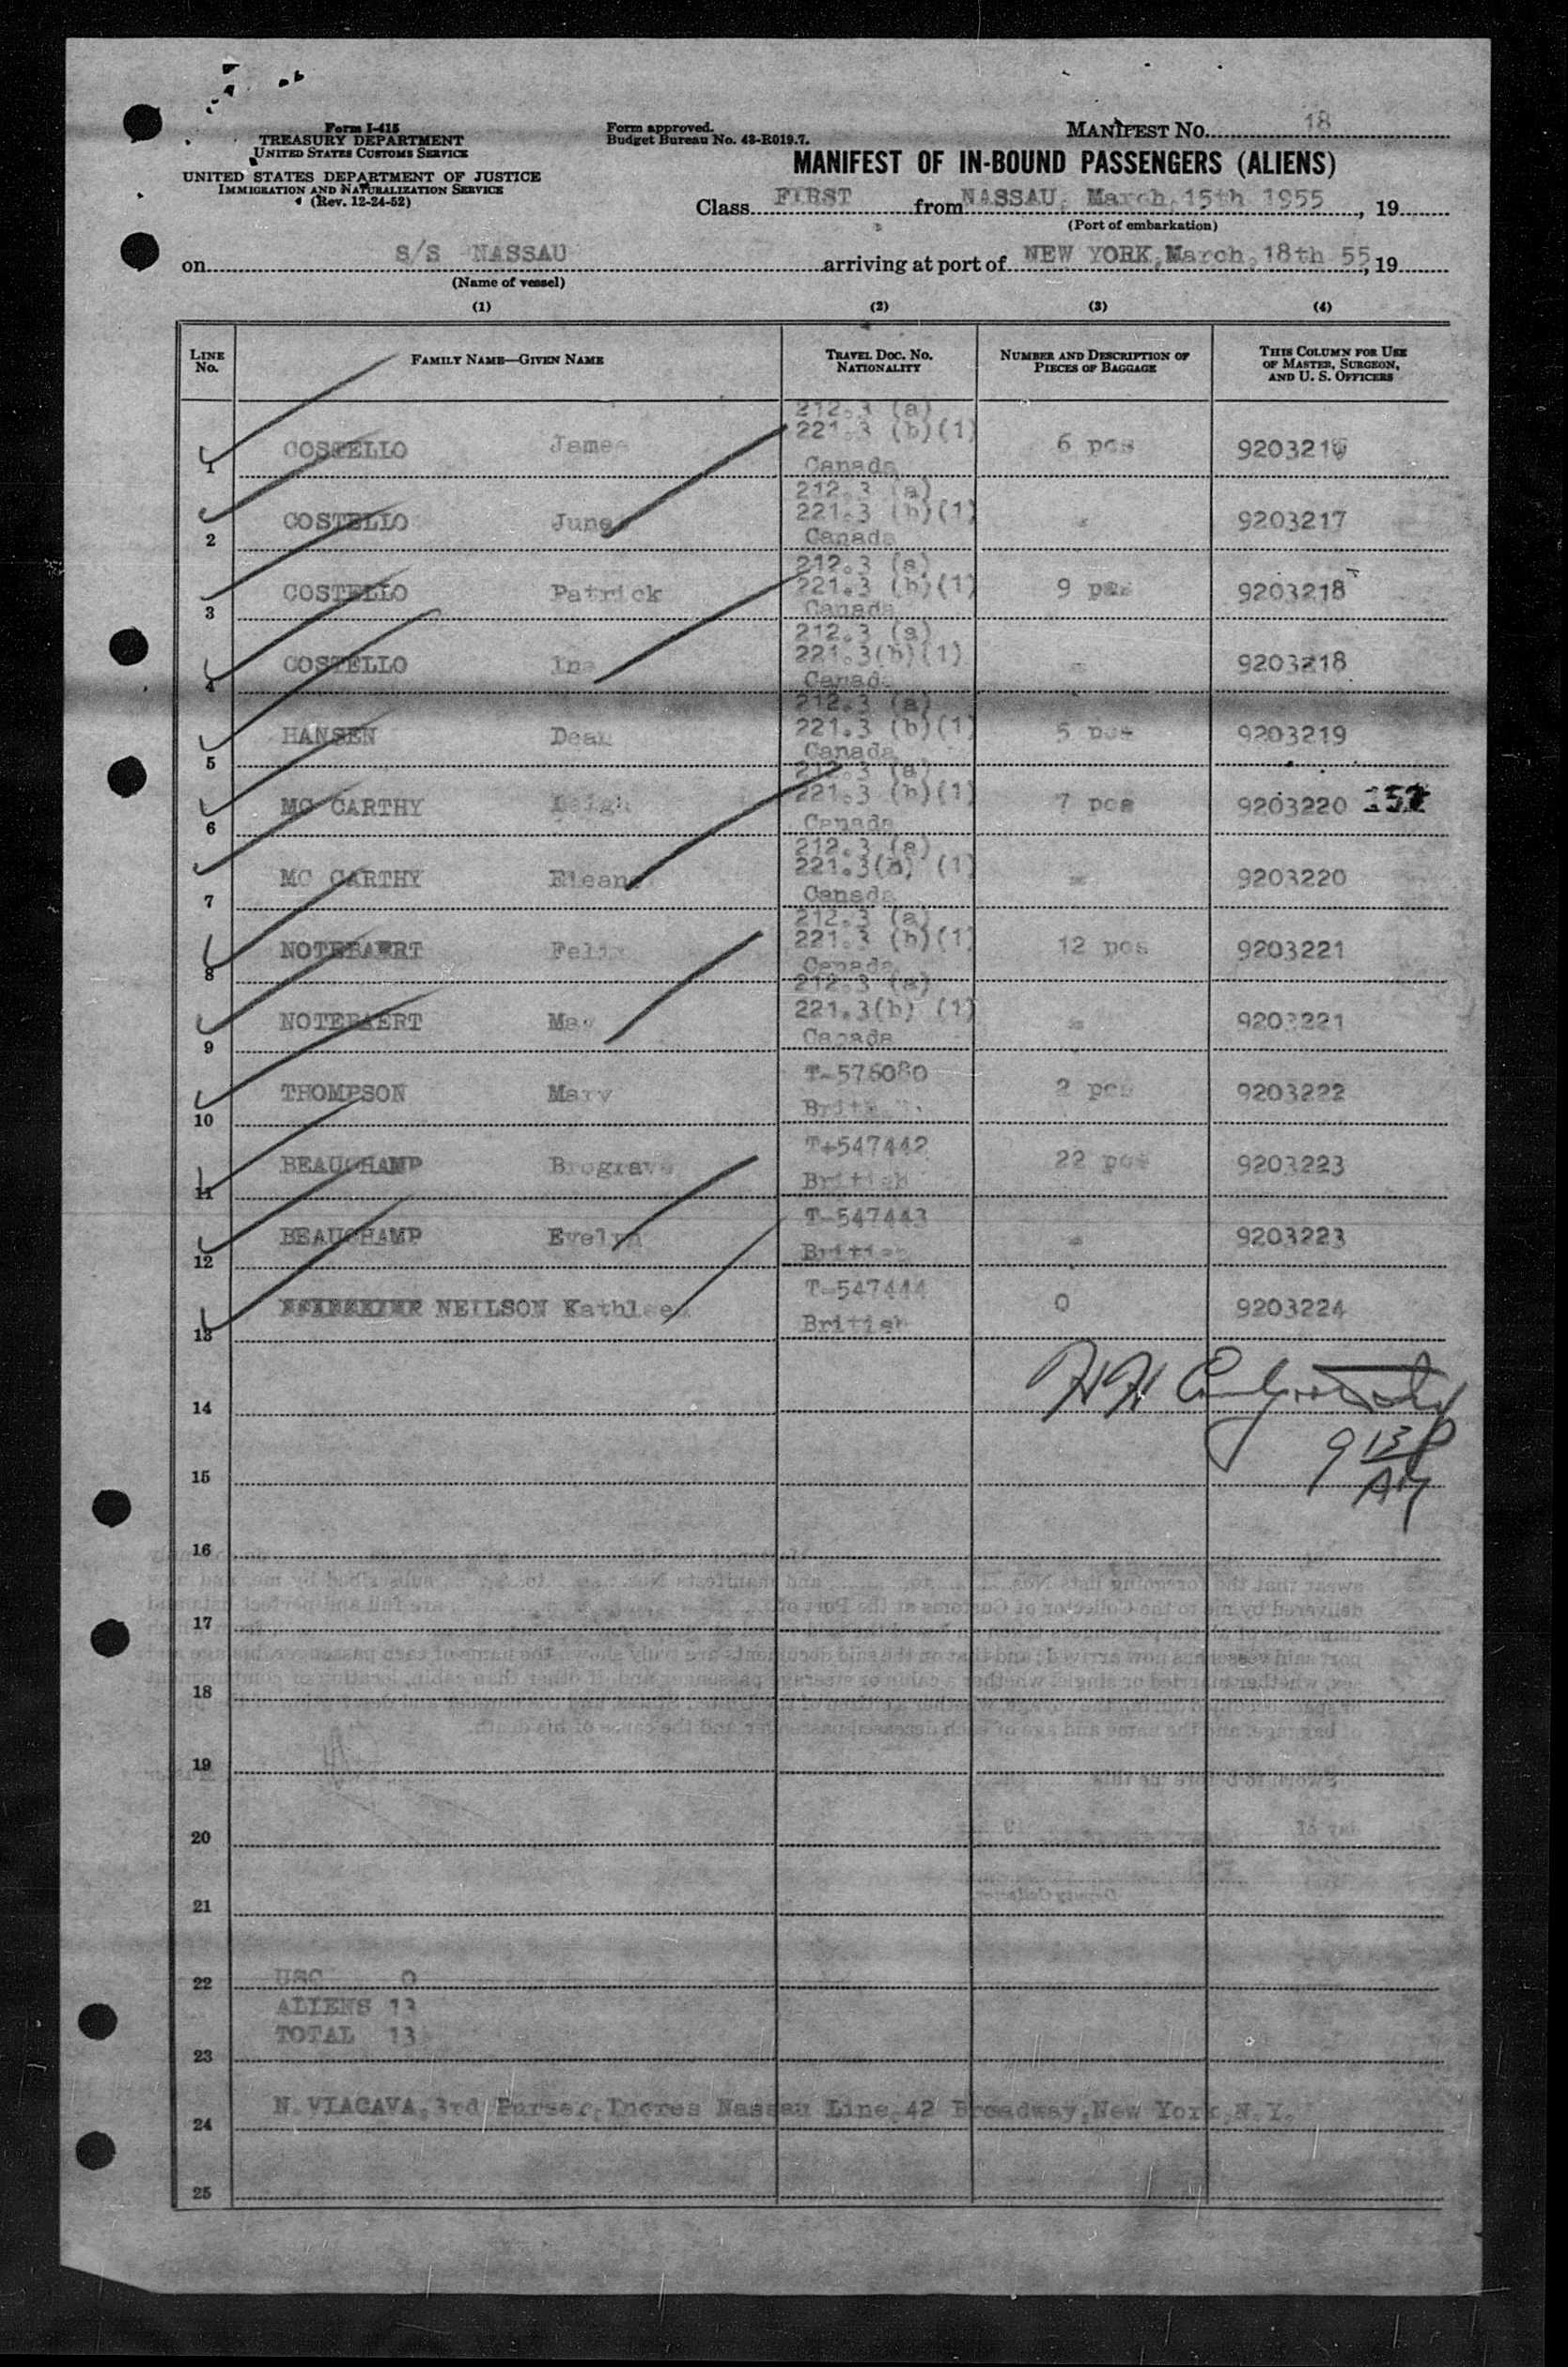 Form I-415
TREASURY DEPARTMENT
UNITED STATES CUSTOMS SERVICE
UNITED STATES DEPARTMENT OF JUSTICE
IMMIGRATION AND NATURALIZATION SERVICE
(Rev. 12-24-52)
Form approved.
Budget Bureau No. 43-R019.7.
MANIFEST NO. 18
MANIFEST OF IN-BOUND PASSENGERS (ALIENS)
Class FIRST from NASSAU, March, 15th 1955, 19
(Port of embarkation)
on S/S NASSAU arriving at port of NEW YORK, March, 18th 55, 19
(Name of vessel)
(1) (2) (3) (4)
LINE No. FAMILY NAME—GIVEN NAME TRAVEL DOC. NO. NATIONALITY NUMBER AND DESCRIPTION OF PIECES OF BAGGAGE THIS COLUMN FOR USE OF MASTER, SURGEON, AND U. S. OFFICERS
212.3 (a)
221.3 (b)(1)
1 COSTELLO James Canada 6 pcs
212.3 (a)
221.3 (b)(1)
2 COSTELLO June Canada " 9203217
212.3 (a)
221.3 (b)(1)
3 COSTELLO Patrick Canada 9 pcs 9203218
212.3 (a)
221.3(b)(1)
4 COSTELLO Ina Canada " 9203218
212.3 (a)
221.3 (b)(1)
5 HANSEN Dean Canada 5 pcs 9203219
212.3 (a)
221.3 (b)(1)
6 MC CARTHY Leigh Canada 7 pcs 9203220
212.3 (a)
221.3(b) (1)
7 MC CARTHY Canada " 9203220
212.3 (a)
221.3 (b)(1)
8 NOTEBAERT Felix Canada 12 pcs 9203221
212.3 (a)
221.3(b) (1)
9 NOTEBAERT May Canada " 9203221
T-576080
10 THOMPSON Mary British 2 pcs 9203222
T-547442
11 BEAUCHAMP Brograve British 22 pcs 9203223
T-547443
12 BEAUCHAMP Evelyn British " 9203223
T-547444
13 NEILSON Kathleen British 0 9203224
14
9 13
AM
15
16
17
18
19
20
21
22 USC 0
ALIENS 13
TOTAL 13
23
24 N. VIACAVA, 3rd Purser, Incres Nassau Line, 42 Broadway, New York, N.Y.
25